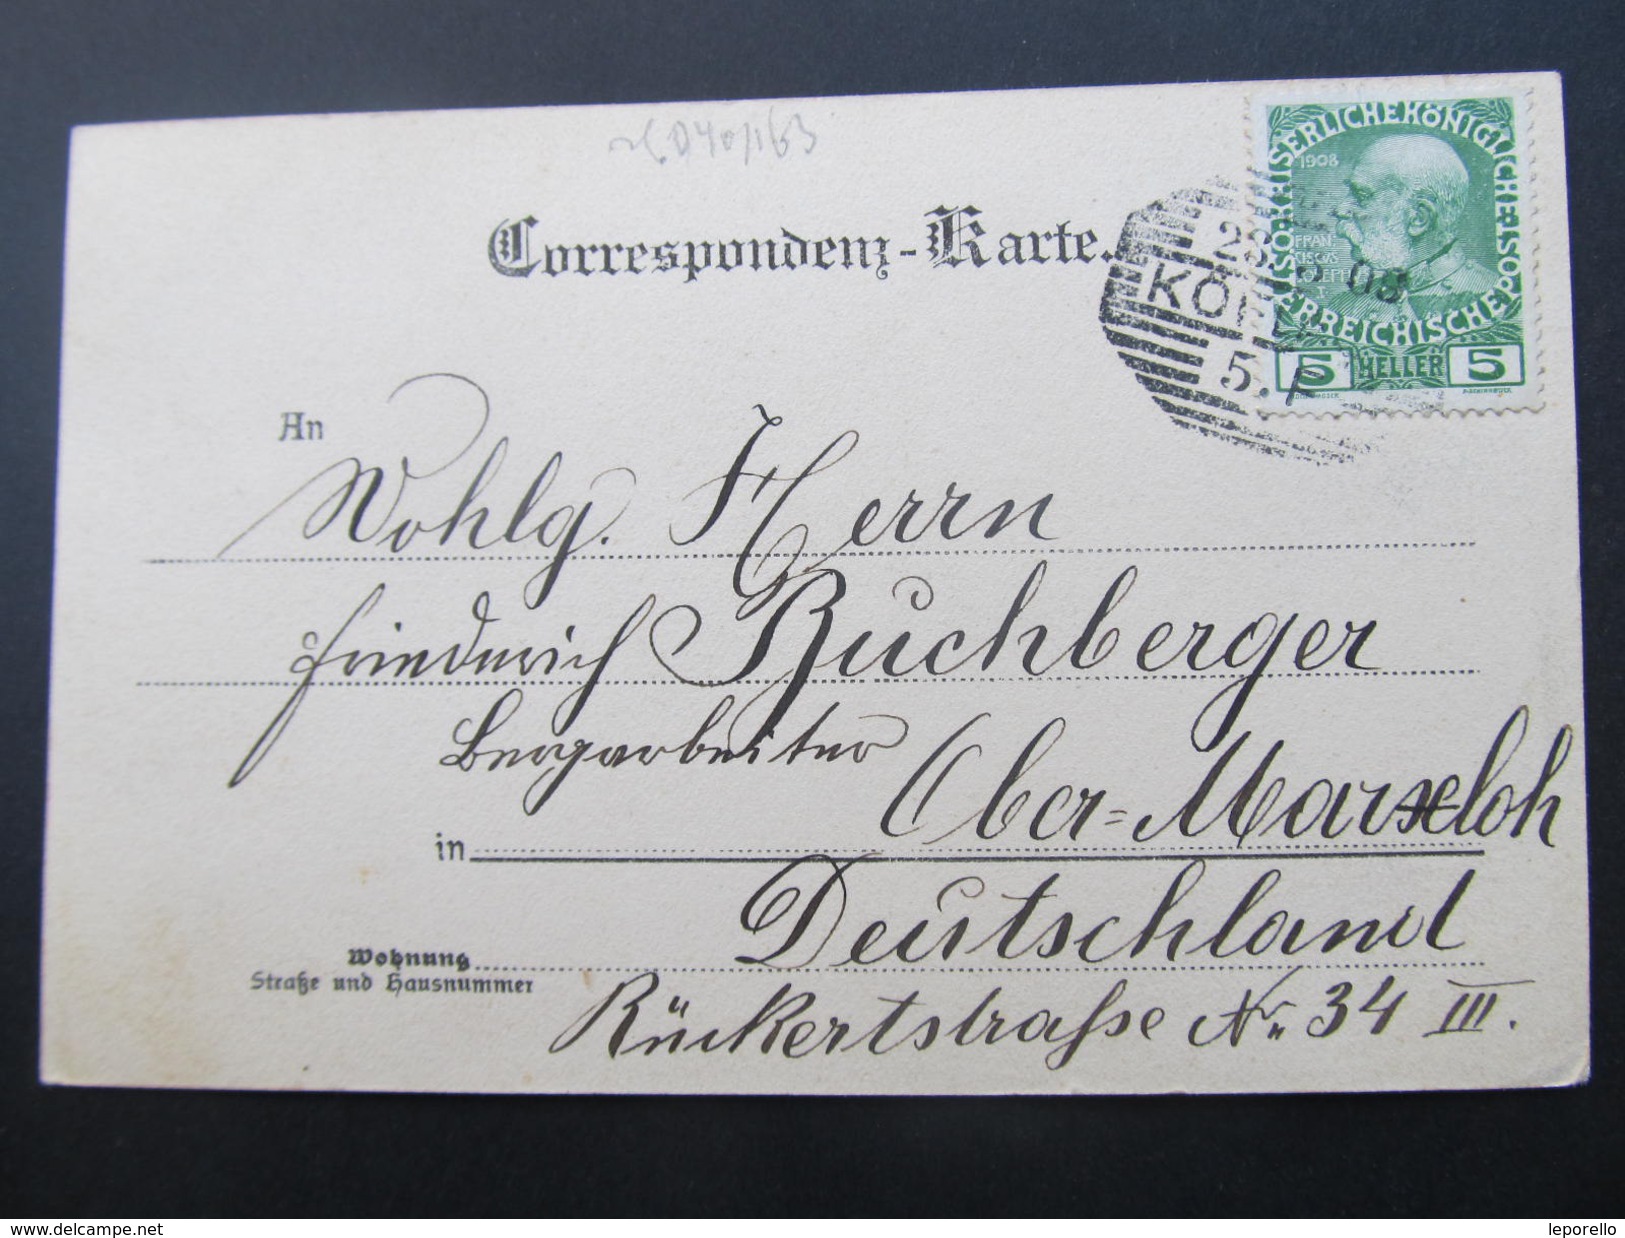 Correspondenz-Karte.
KAISERLICHEKÖNIGLICHE ÖSTERREICHISCHE POST
1908
FRAN
CISCVS
IOSEPH
I
5 HELLER 5
08
5.
An
Wohlg. Herrn
Friederich Buchberger
Bergarbeiter
in Ober=Marxeloh
Deutschland
Wohnung
Straße und Hausnummer
Rückertstraße Nr. 34 III.
delcampe.net
leporello